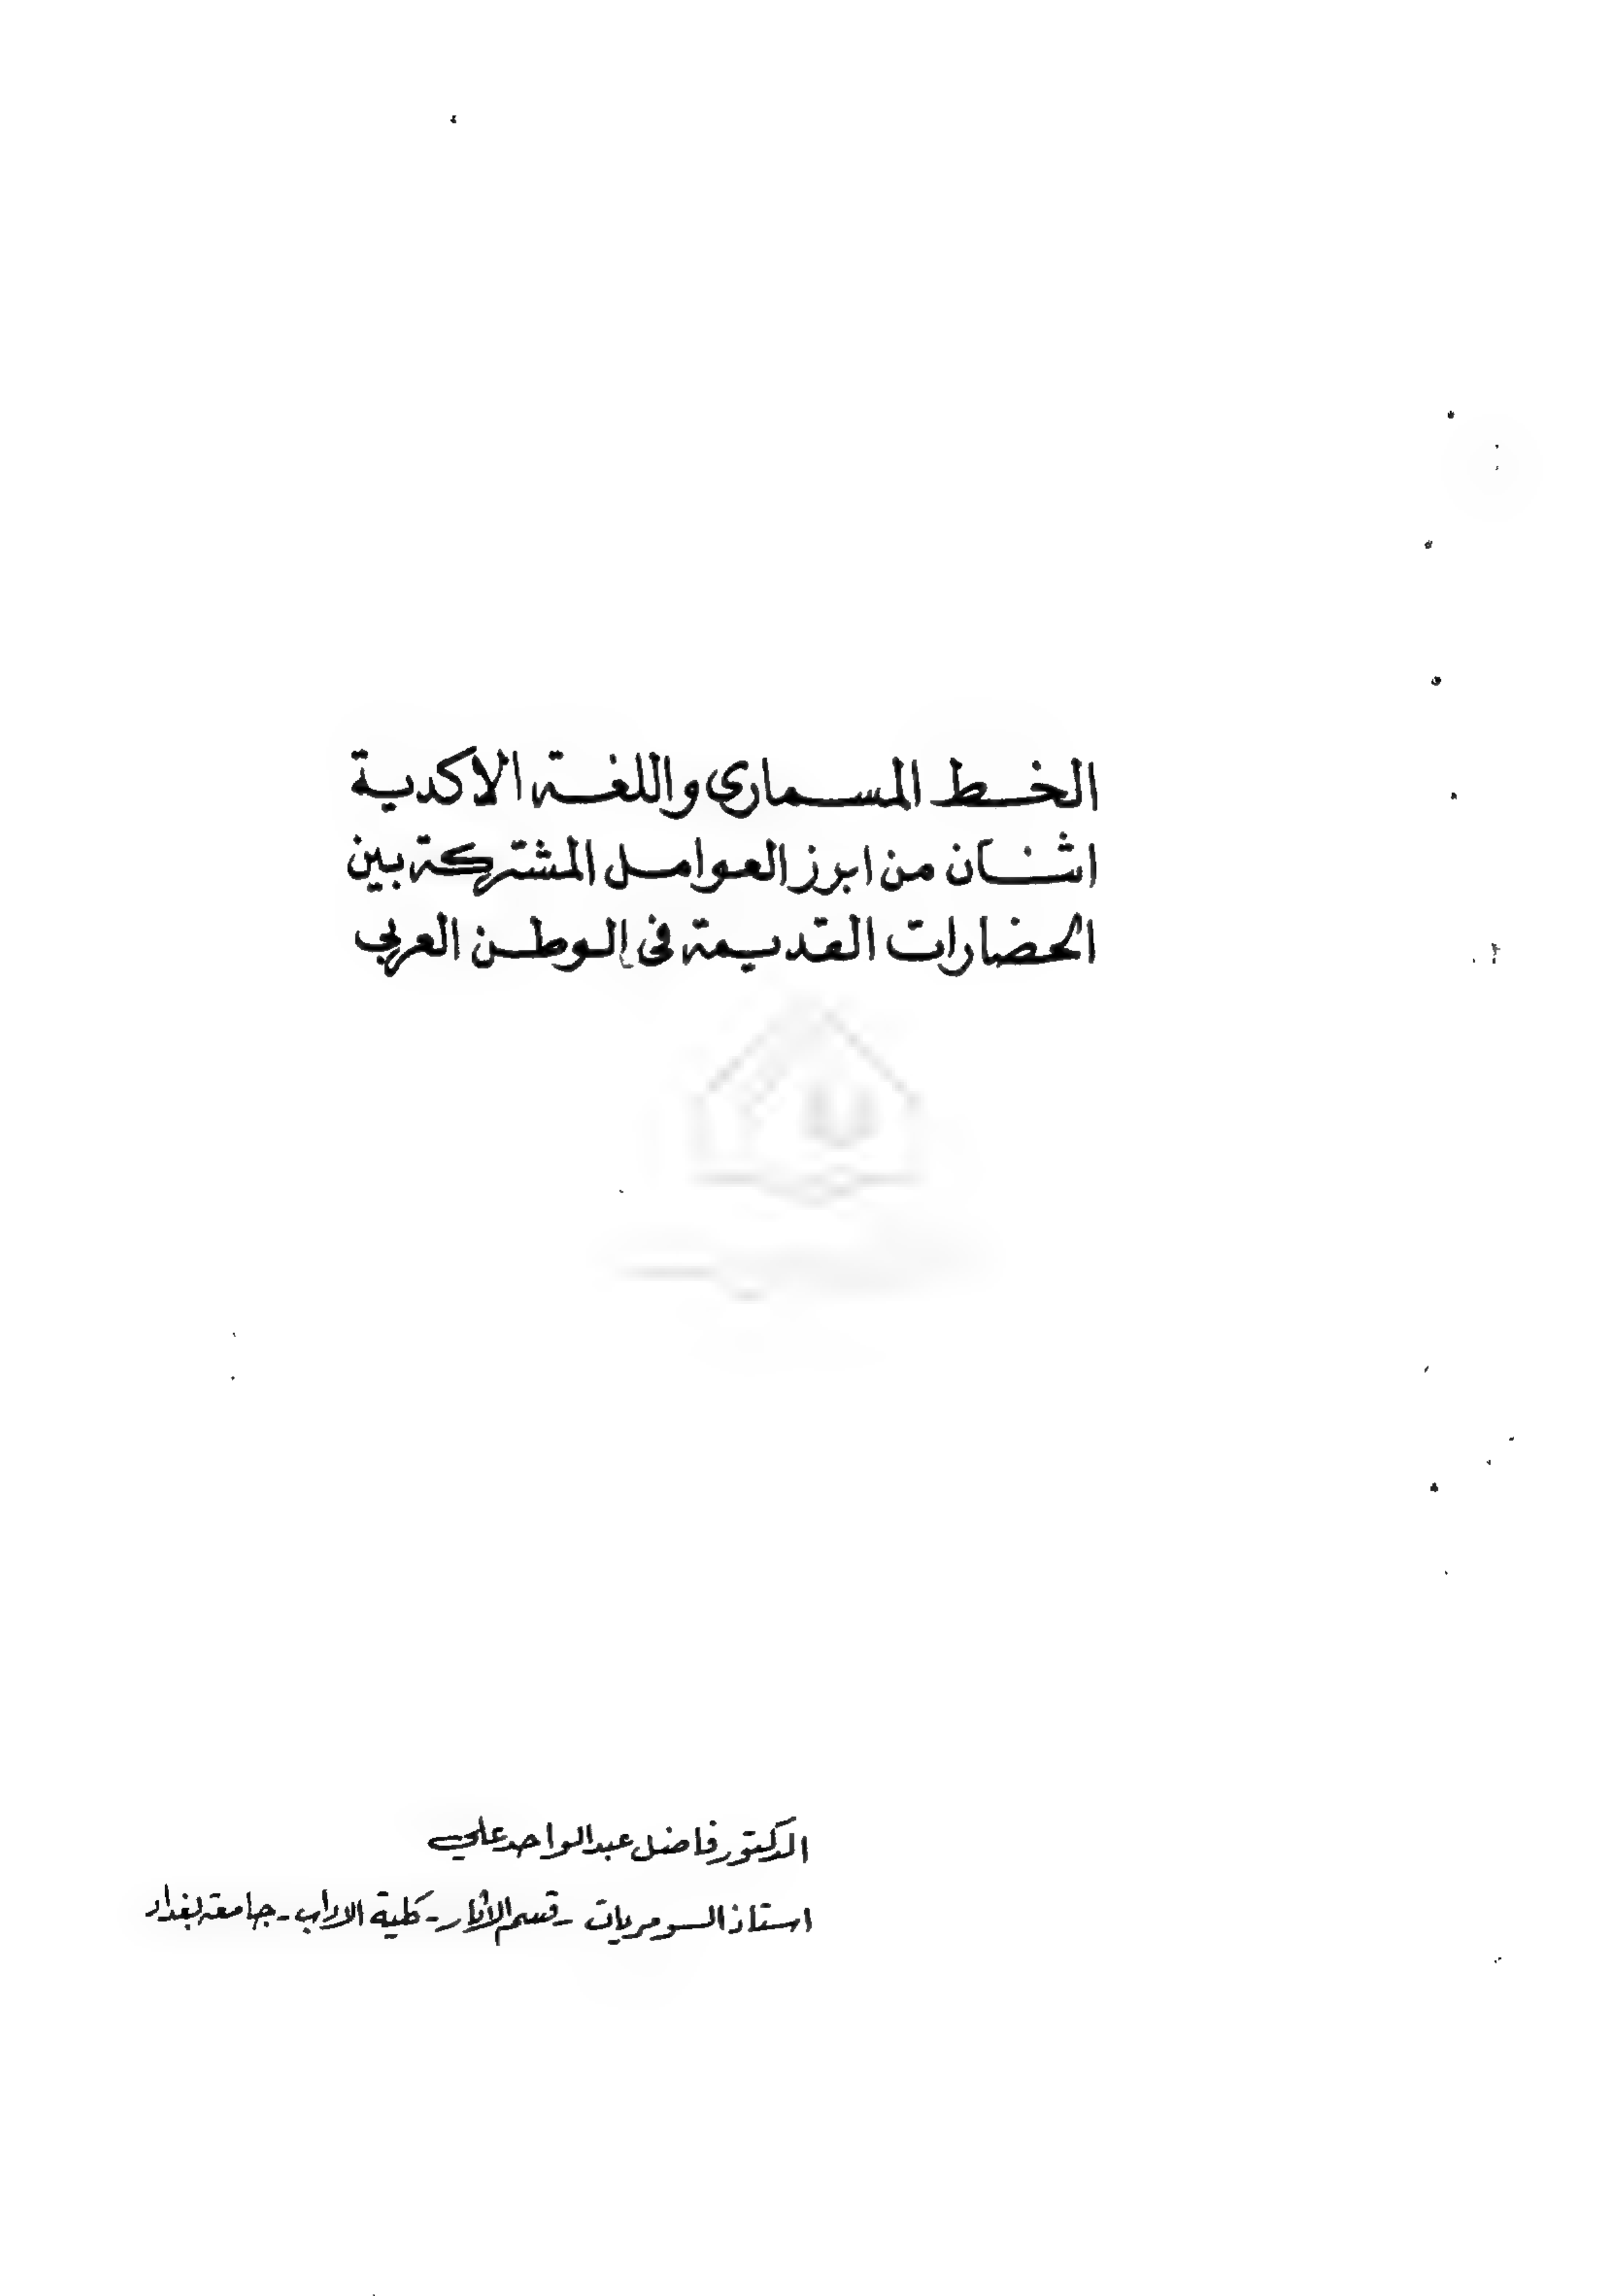 الخط المسمارى واللغة الاكدية
اثنان من ابرز العوامل المشتركة بين
الحضارات القديمة فى الوطن العربي
الدكتور فاضل عبدالواحد علي
استاذ السومريات - قسم الاثار - كلية الاداب - جامعة بغداد